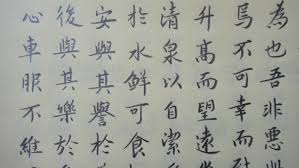 為也吾非惡
焉不可幸而
升高而望遠
清泉以自潔
於水鮮可食
安與其譽於
後與其樂於
心車服不維